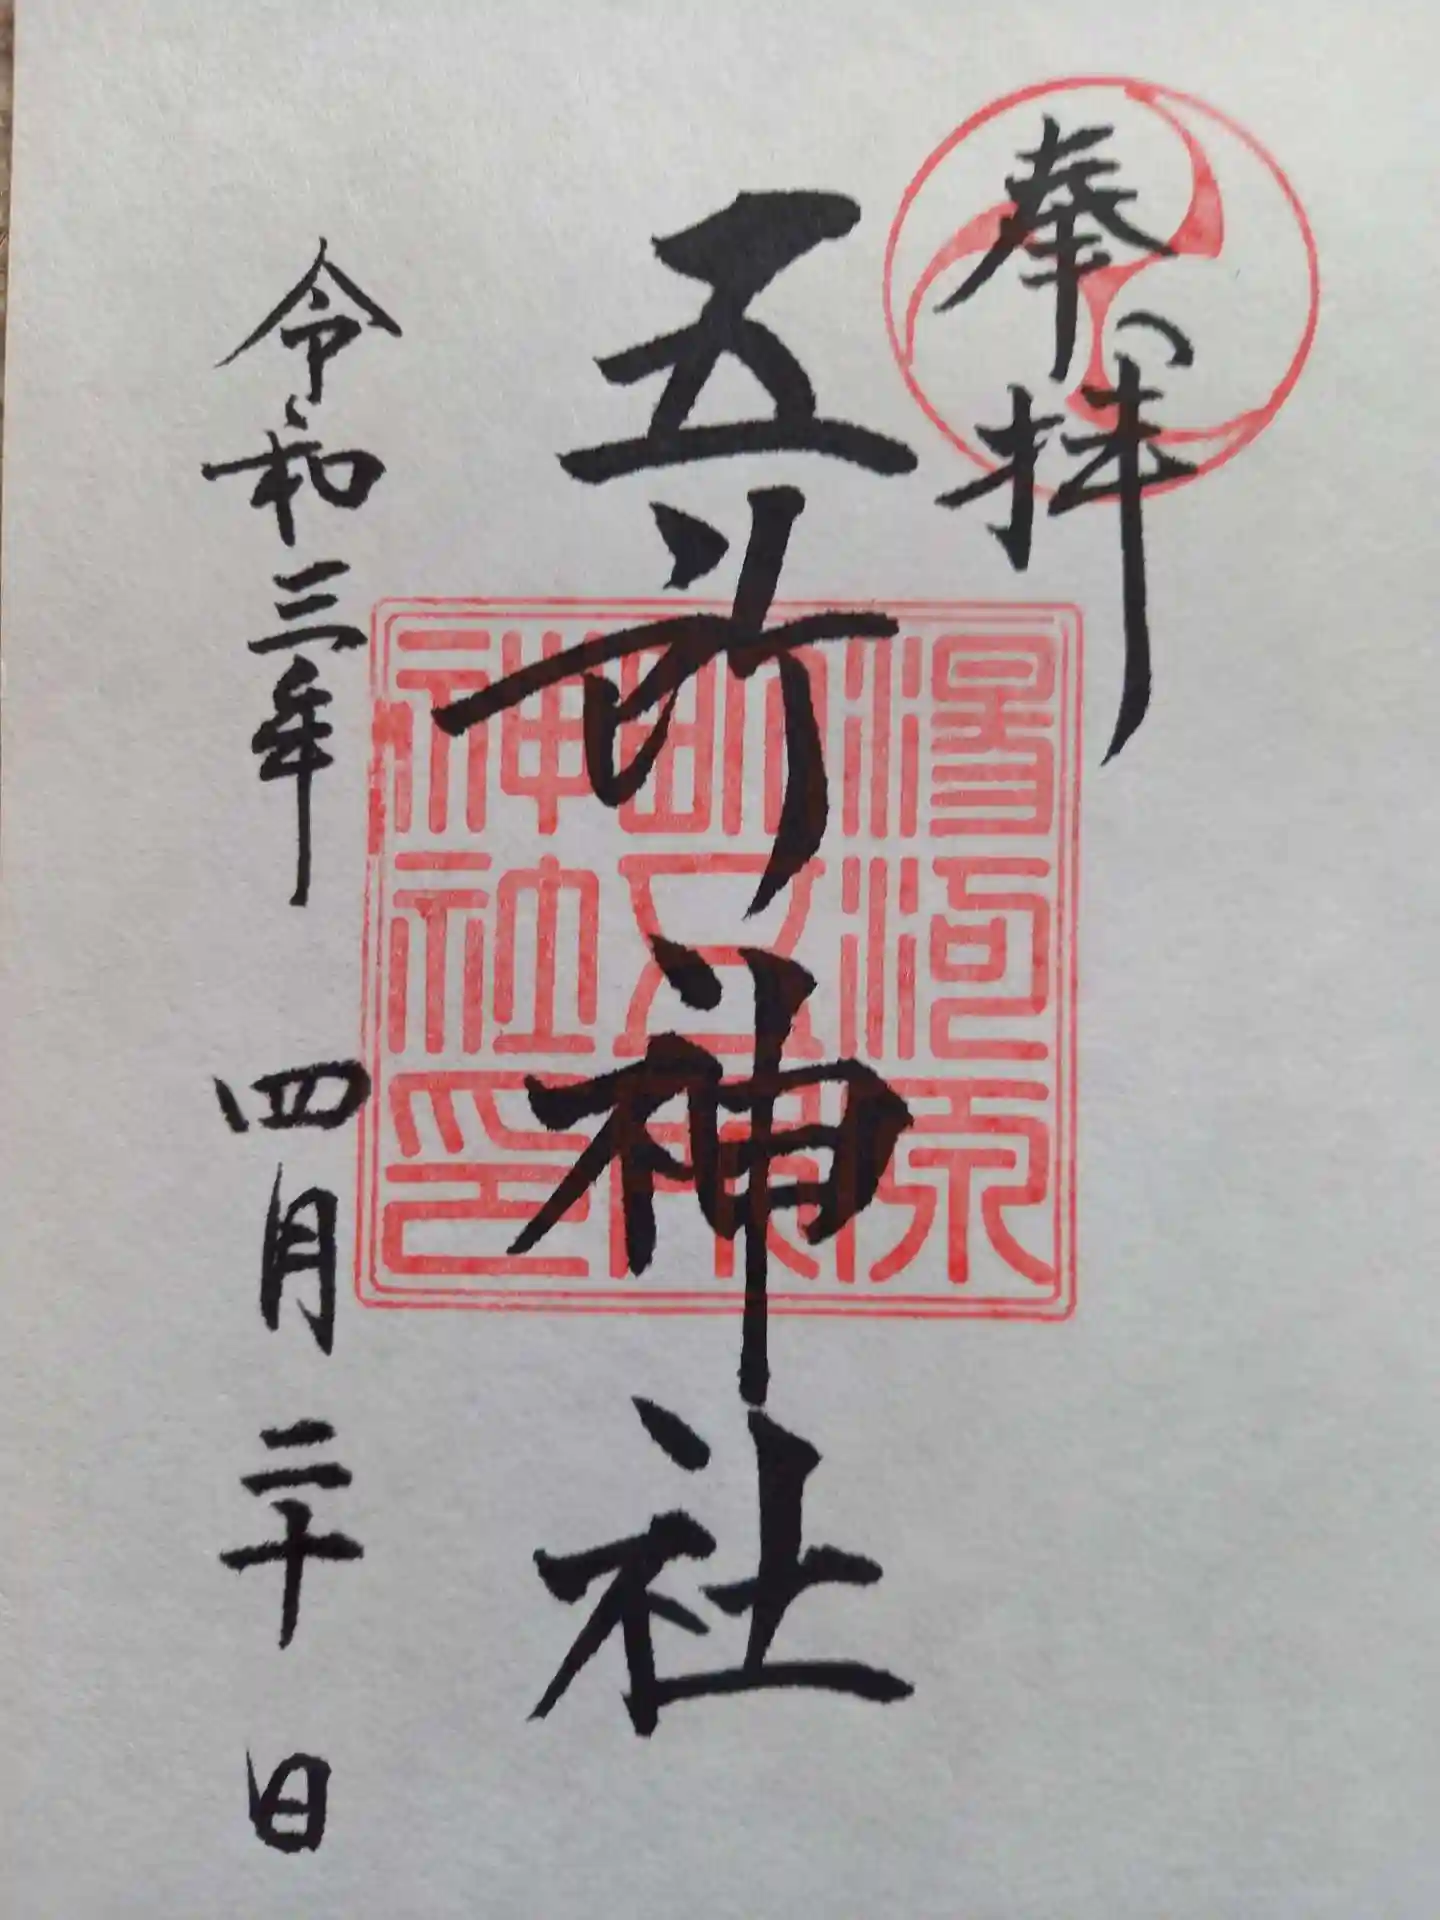 奉拝
五所神社
令和三年 四月 二十 日
湯河原
五所
神社印